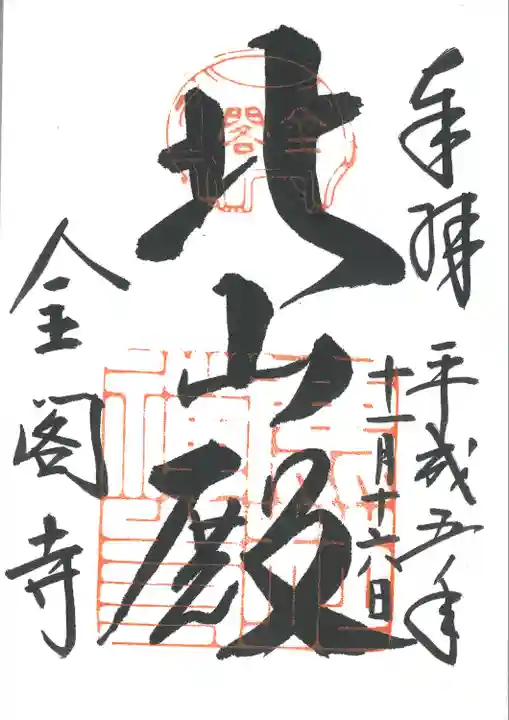 奉拝 平成五年
十一月十六日
北山殿
金閣寺
金閣